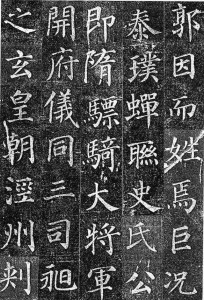 郭因而姓焉巨况
泰璞蟬聮史氏公
即隋驃騎大將軍
開府儀同三司昶
之玄皇朝涇州刾